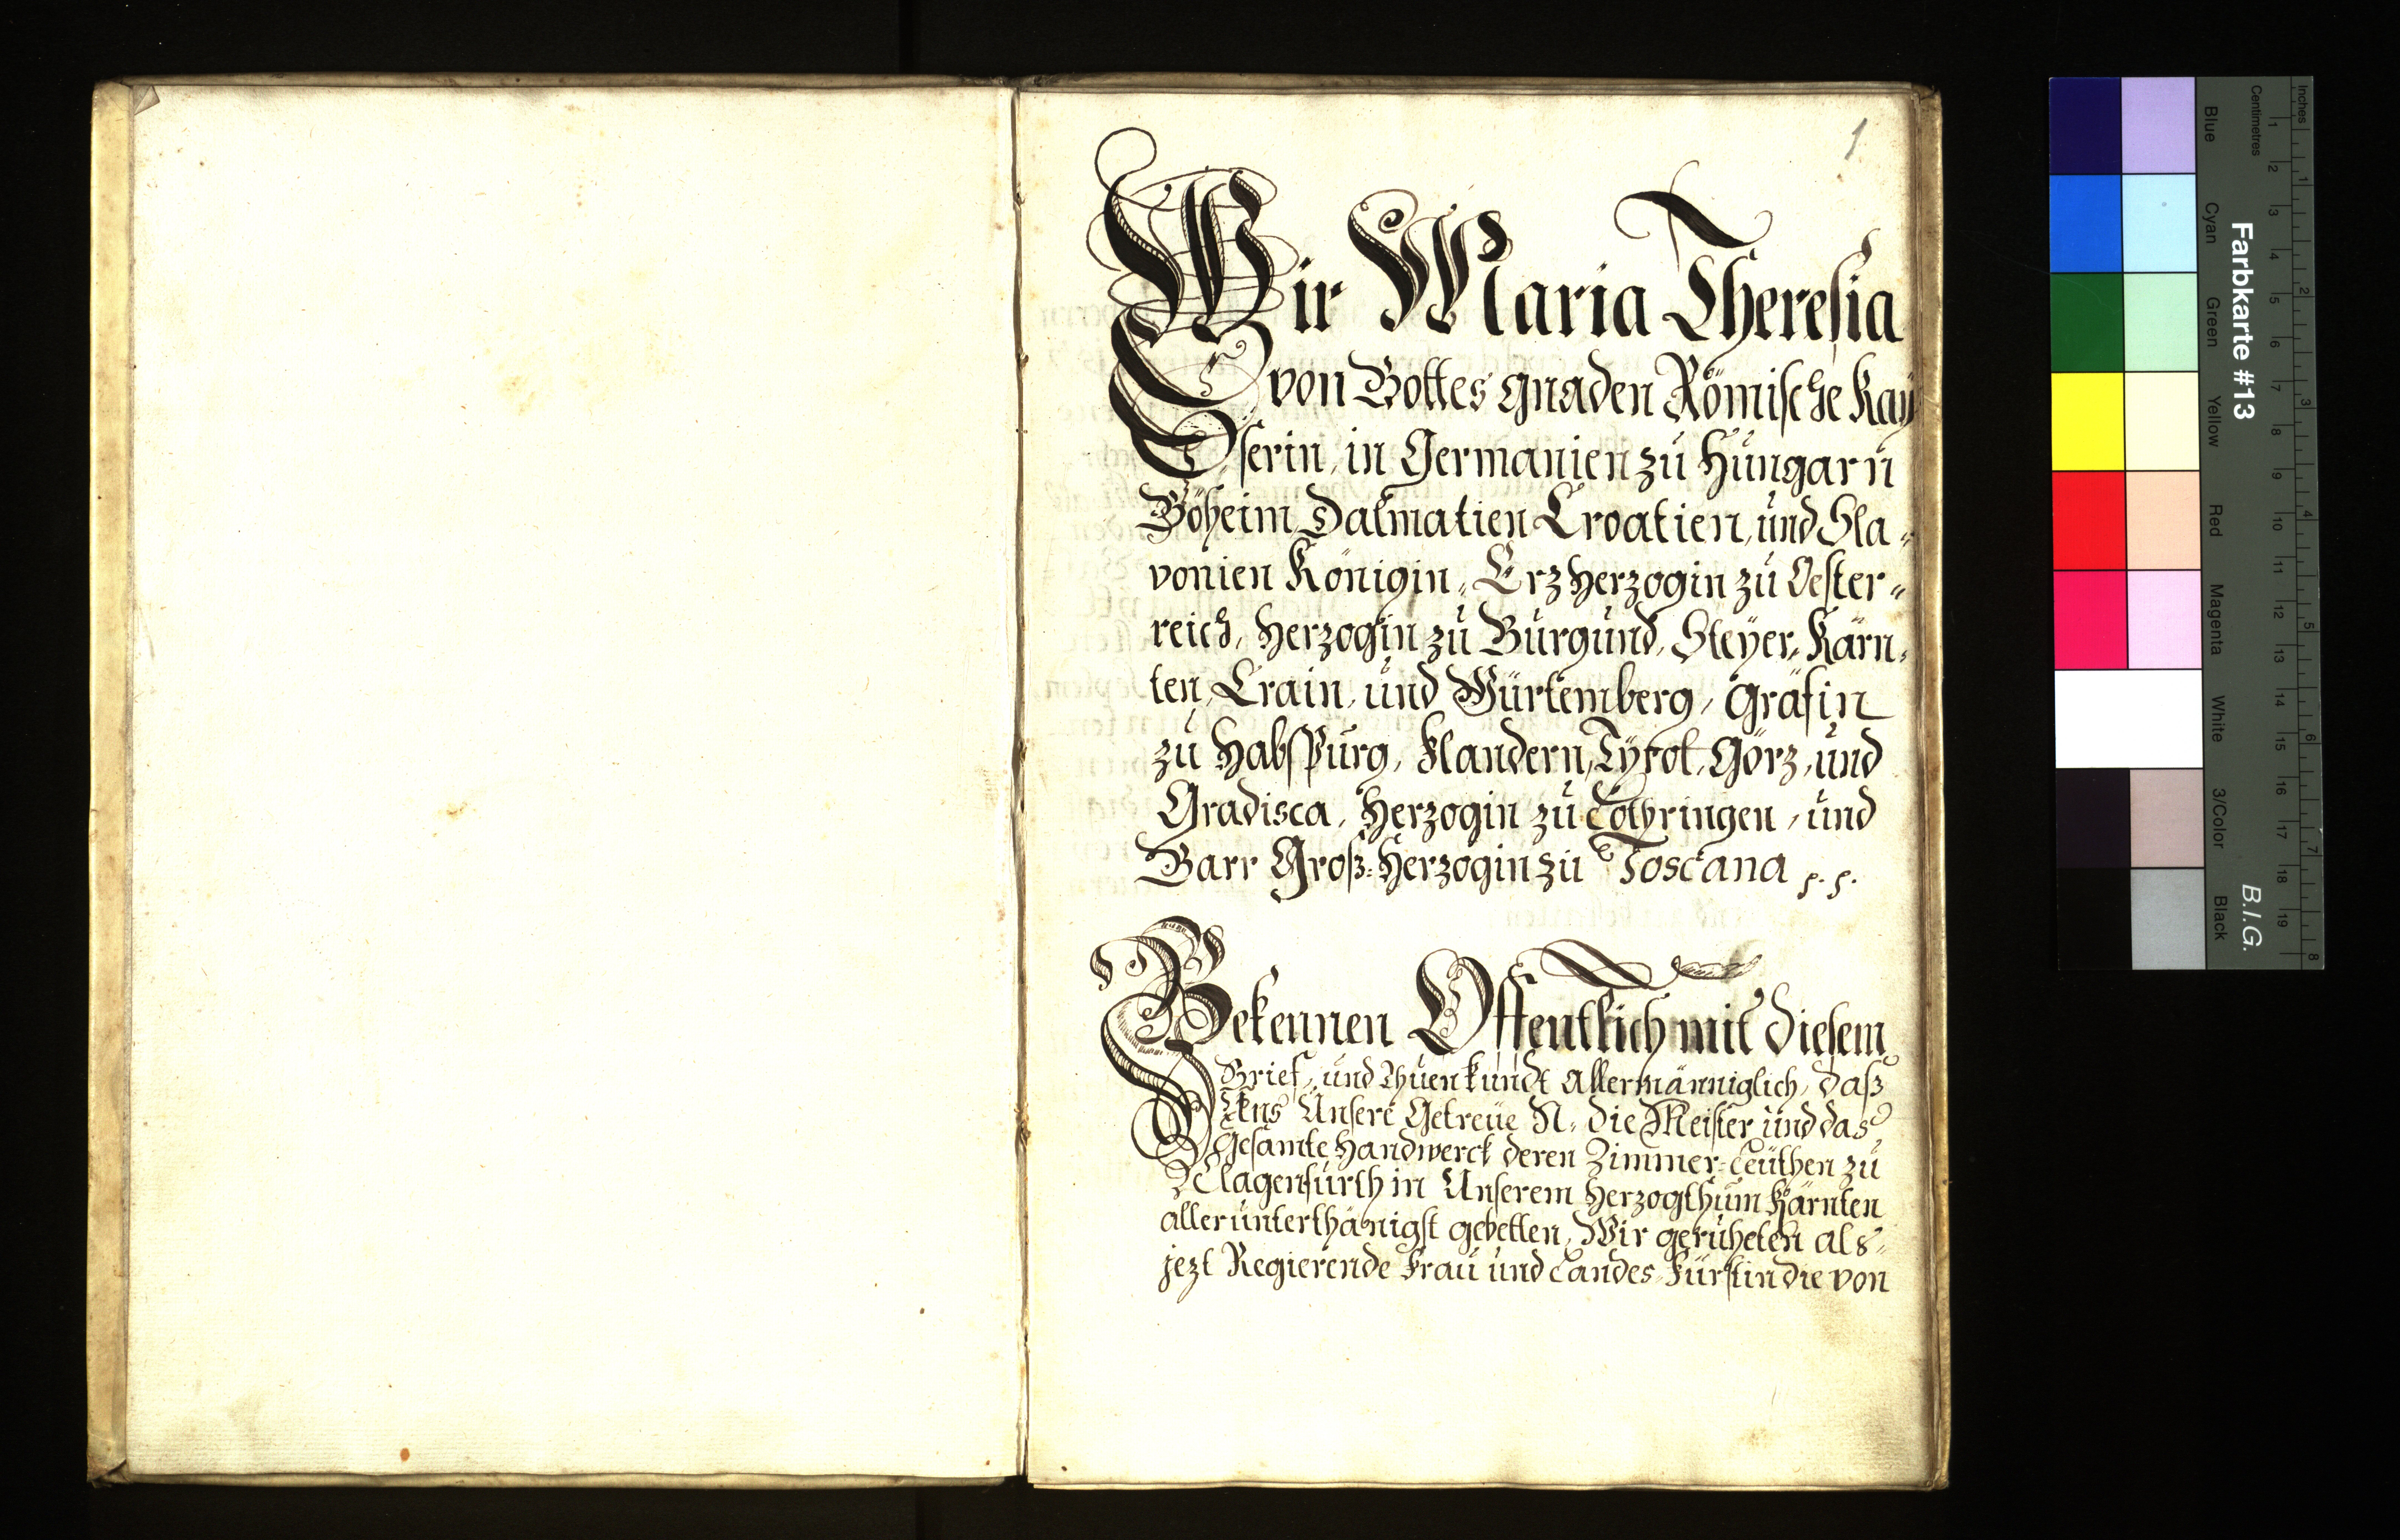 1
Wir Maria Theresia
von Gottes gnaden Römische Kaÿ
serin, in Germanien zu Hungarn
Böheim Dalmatien Croatien, und Sla=
vonien Königin, Erzherzogin zu Oester=
reich, Herzogin zu Burgund, Steÿer, Kärn=
ten, Crain, und Würtemberg, Gräfin
zu Habspurg, Flandern, Tÿrol, Görz, und
Gradisca, Herzogin zu Lothringen, und
Barr Groß=Herzogin zu Toscana
Bekennen Offentlich mit diesem
Brief, und Thuen kundt allermänniglich, daß
Uns Unsere Getreue N. die Meister und das
Gesamte Handwerck deren Zimmer=Leuthen zu
Clagenfurth in Unserem Herzogthum Kärnten
allerunterthänigst gebetten, Wir geruheten als
jezt Regierende Frau und Landes=Fürstin die von
Inches
Centimetres
1 2 3 4 5 6 7 8
1 2 3 4 5 6 7 8 9 10 11 12 13 14 15 16 17 18 19
Farbkarte #13
B.I.G.
Blue
Cyan
Green
Yellow
Red
Magenta
White
3/Color
Black